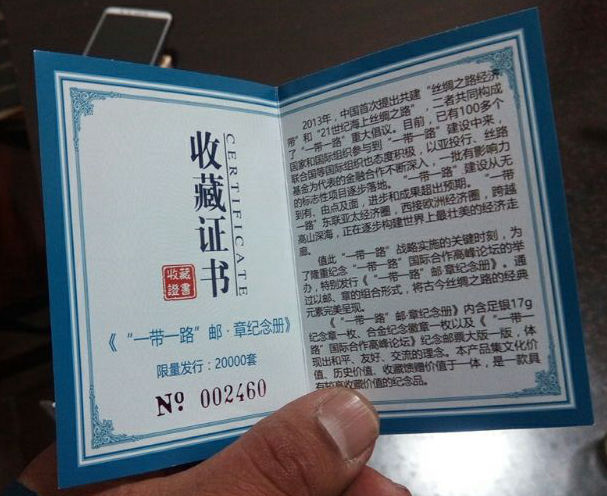 收藏证书
CERTIFICATE
收藏
證書
《“一带一路”邮·章纪念册》
限量发行：20000套
Nº 002460
2013年，中国首次提出共建“丝绸之路经济
带”和“21世纪海上丝绸之路”，二者共同构成
了“一带一路”重大倡议。目前，已有100多个
国家和国际组织参与到“一带一路”建设中来，
联合国等国际组织也态度积极，以亚投行、丝路
基金为代表的金融合作不断深入，一批有影响力
的标志性项目逐步落地。“一带一路”建设从无
到有、由点及面，进步和成果超出预期。“一带
一路”东联亚太经济圈，西接欧洲经济圈，跨越
高山深海，正在逐步构建世界上最壮美的经济走
廊。
值此“一带一路”战略实施的关键时刻，为
了隆重纪念“一带一路”国际合作高峰论坛的举
办，特别发行《“一带一路”邮·章纪念册》。通
过以邮、章的组合形式，将古今丝绸之路的经典
元素完美呈现。
《“一带一路”邮·章纪念册》内含足银17g
纪念章一枚、合金纪念徽章一枚以及《“一带一
路”国际合作高峰论坛》纪念邮票大版一版，体
现出和平、友好、交流的理念。本产品集文化价
值、历史价值、收藏馈赠价值于一体，是一款具
有较高收藏价值的纪念品。